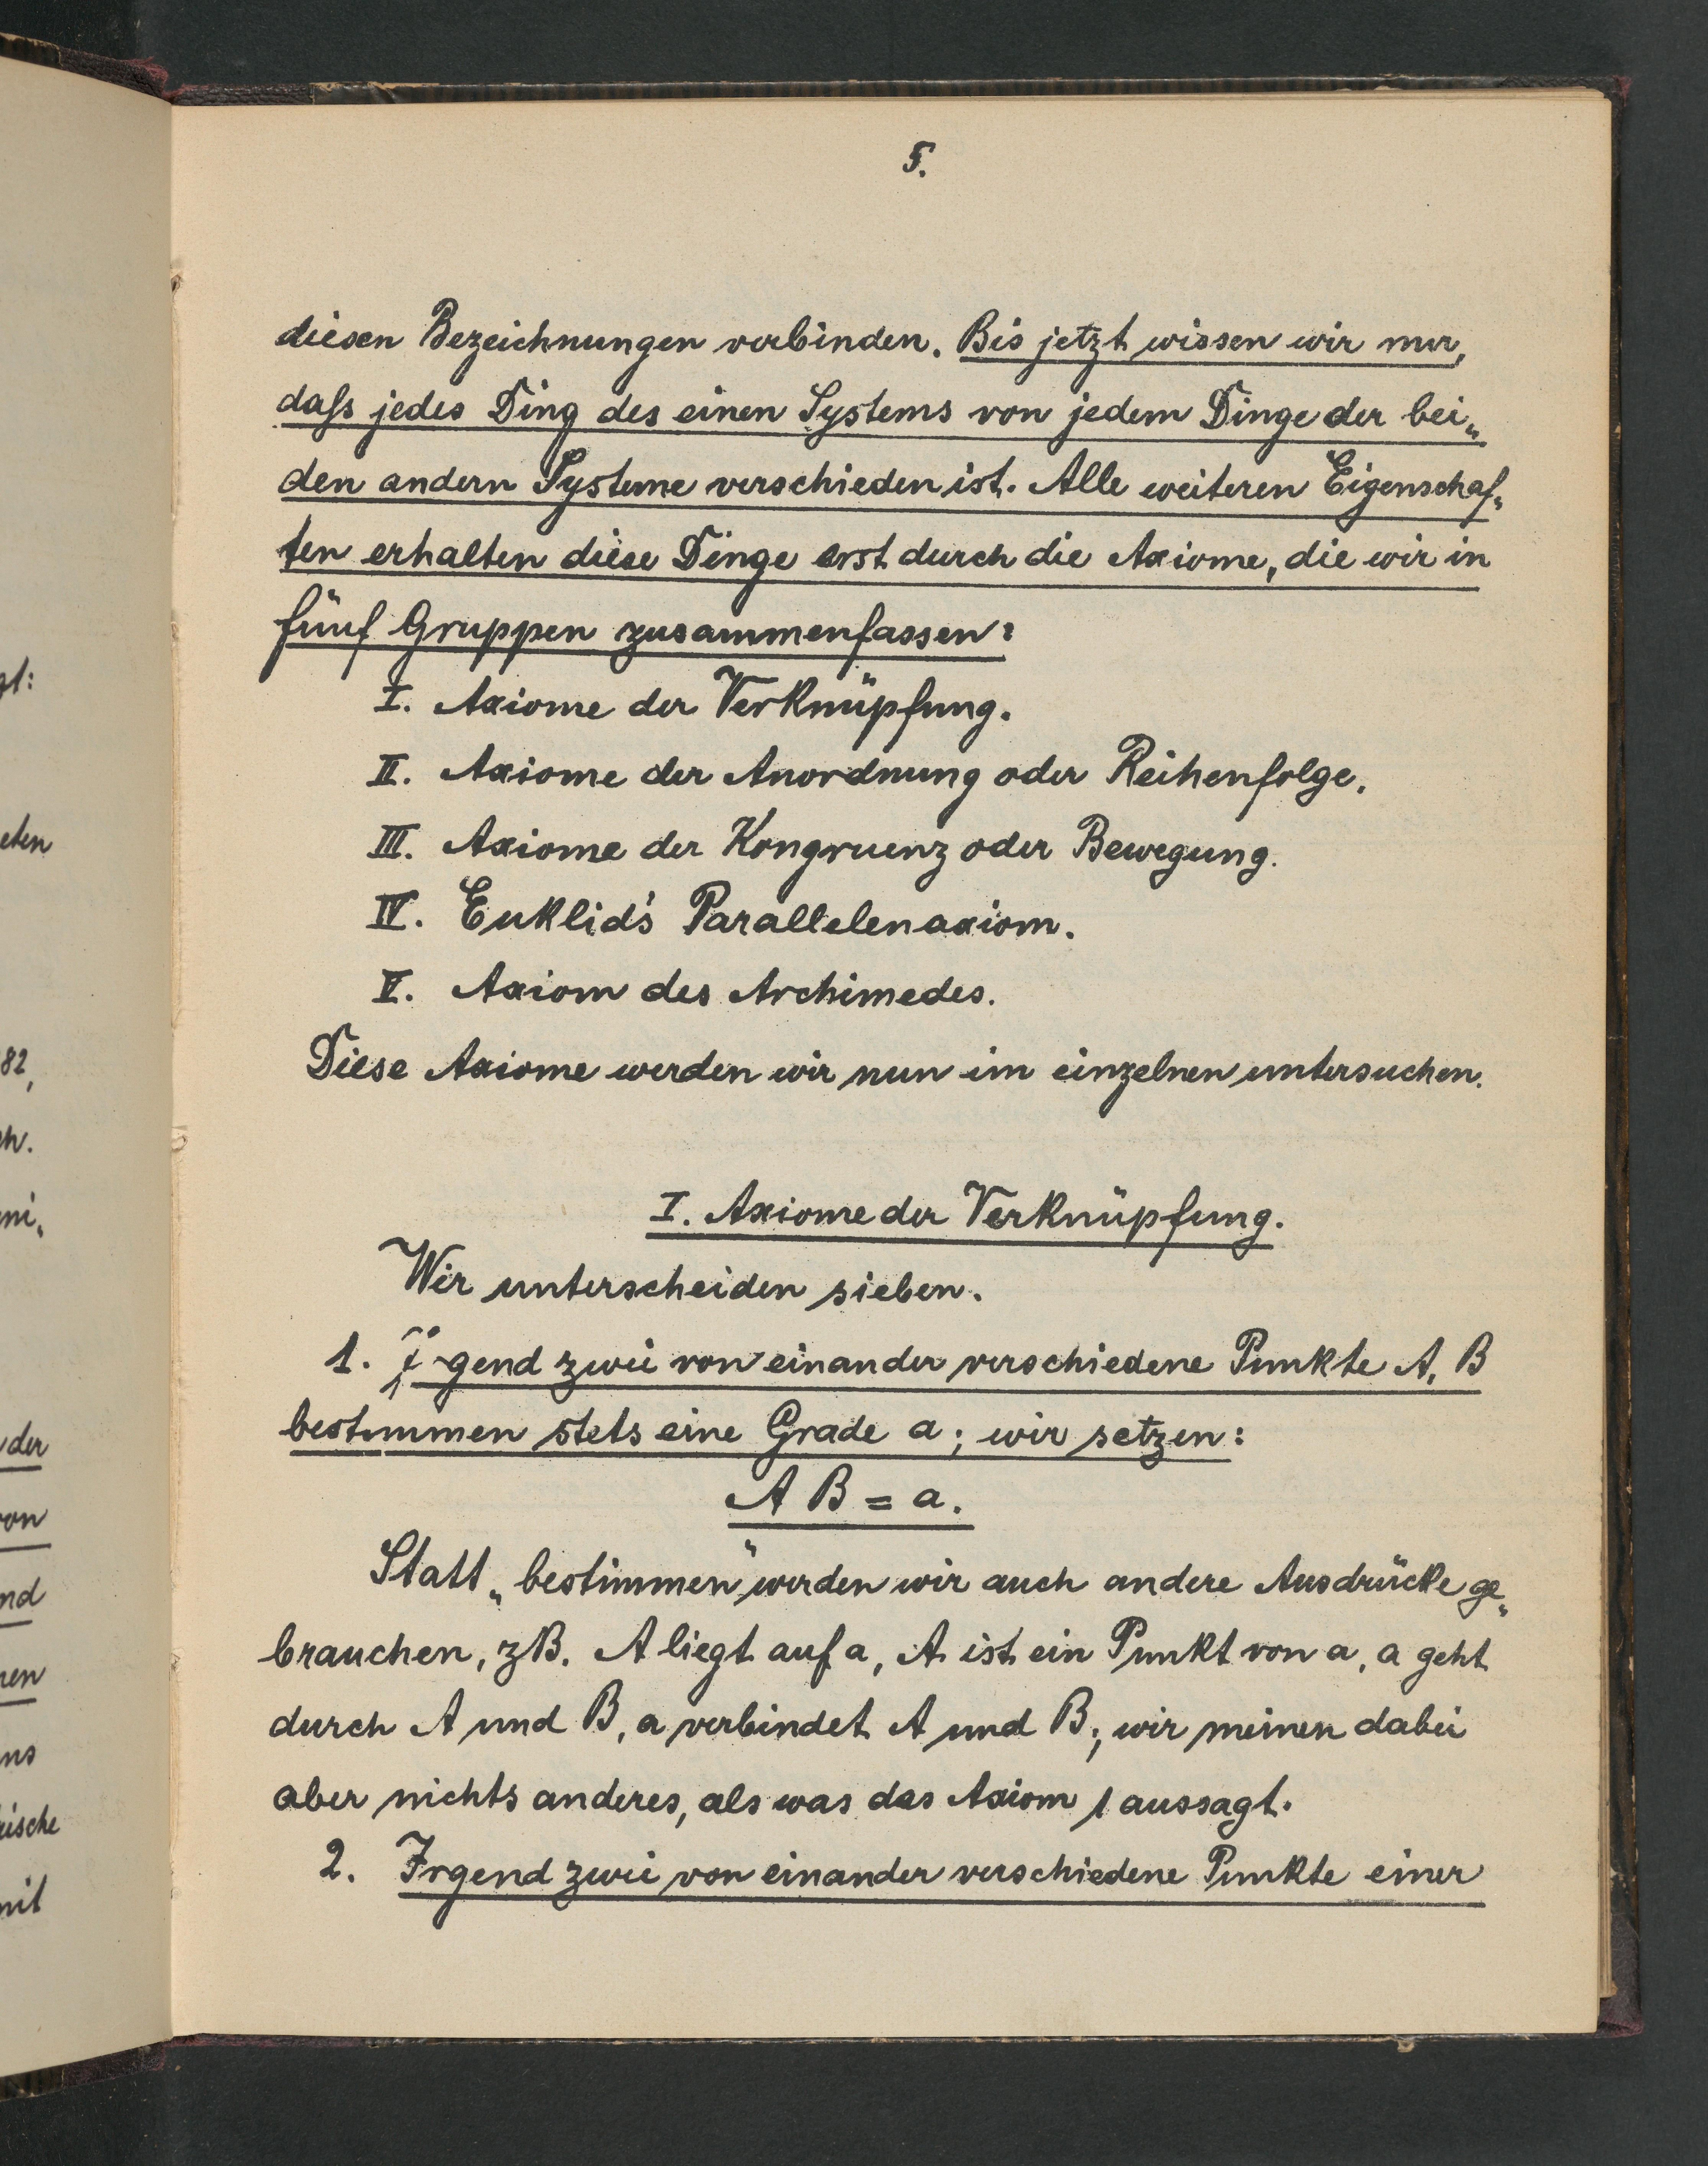 5.
diesen Bezeichnungen verbinden. Bis jetzt wissen wir nur,
daſs jedes Ding des einen Systems von jedem Dinge der bei„
den andern Systeme verschieden ist. Alle weiteren Eigenschaf„
ten erhalten diese Dinge erst durch die Axiome, die wir in
fünf Gruppen zusammenfassen:
I. Axiome der Verknüpfung.
II. Axiome der Anordnung oder Reihenfolge.
III. Axiome der Kongruenz oder Bewegung.
IV. Euklid's Parallelenaxiom.
V. Axiom des Archimedes.
Diese Axiome werden wir nun im einzelnen untersuchen.
I. Axiome der Verknüpfung.
Wir unterscheiden sieben.
1. Irgend zwei von einander verschiedene Punkte A, B
bestimmen stets eine Grade a; wir setzen:
A B = a.
Statt „bestimmen" werden wir auch andere Ausdrücke ge„
brauchen, zB. A liegt auf a, A ist ein Punkt von a, a geht
durch A und B, a verbindet A und B; wir meinen dabei
aber nichts anderes, als was das Axiom 1 aussagt.
2. Irgend zwei von einander verschiedene Punkte einer
gt:
eten
82,
ch.
mi„
der
von
nd
nen
ns
rische
mit